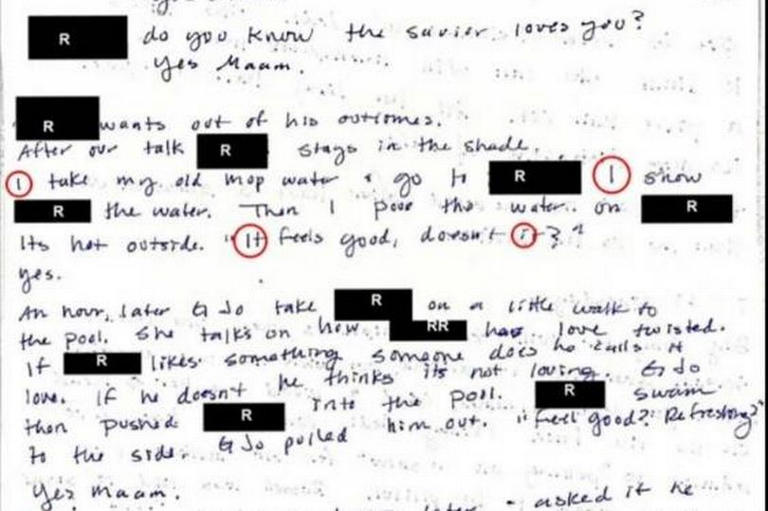 R do you know the savior loves you?
Yes Maam.
R wants out of his outcomes.
After our talk R stays in the shade.
I take my old mop water & go to R I show
R the water. Then I poor the water on R
Its hot outside. "It feels good, doesn't it?"
yes.
An hour later G Jo take R on a little walk to
the pool. She talks on how RR has love twisted.
If R likes something someone does he calls it
love. If he doesn't he thinks its not loving. G Jo
then pushed R into the pool. R swam
to the side. G Jo pulled him out. "feel good? Refreshing?"
Yes maam.
later - asked if he